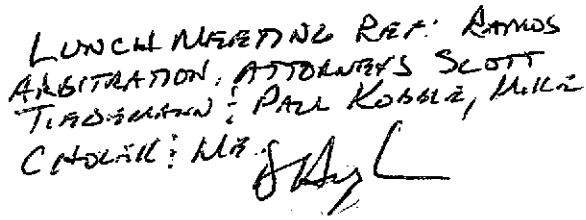 LUNCH MEETING REF: RAMOS
ARBITRATION. ATTORNEYS SCOTT
TIEDEMANN & PAUL KOBBLE, MIKE
CHOLEK & ME.